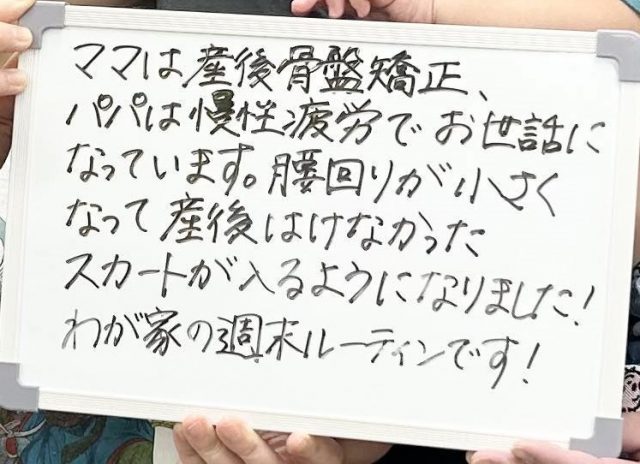 ママは産後骨盤矯正、
パパは慢性疲労でお世話に
なっています。腰回りが小さく
なって産後はけなかった
スカートが入るようになりました!
わが家の週末ルーティンです!